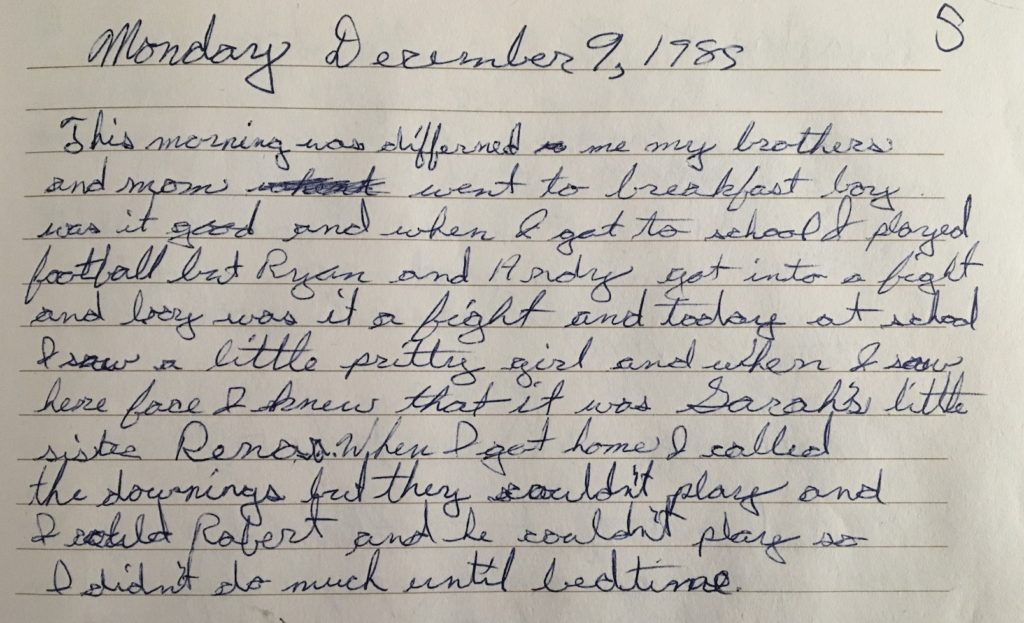 Monday December 9, 1985
5
This morning was differned me my brothers
and mom went to breakfast boy
was it good and when I got to school I played
football but Ryan and Andy got into a fight
and boy was it a fight and today at school
I saw a little pritty girl and when I saw
here face I knew that it was Sarah's little
sister Rena. When I got home I called
the downings but they couldn't play and
I called Robert and he couldn't play so
I didn't do much until bedtime.